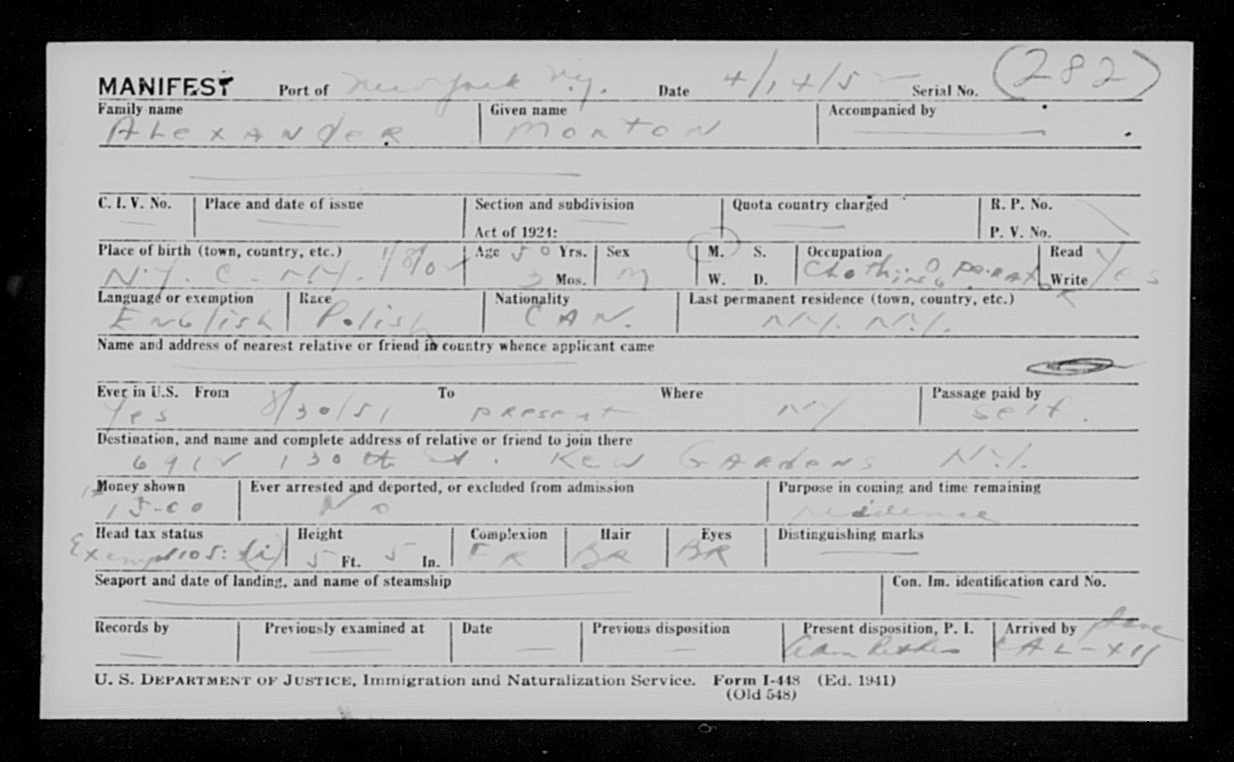 MANIFEST Port of New York N.Y. Date 4/14/5 Serial No. (282)
Family name Given name Accompanied by
ALEXANDER MORTON
C. I. V. No. Place and date of issue Section and subdivision Quota country charged R. P. No.
Act of 1924: P. V. No.
Place of birth (town, country, etc.) Age 50 Yrs. Sex M. S. Occupation Read
N.Y. C. N.Y. Mos. M W. D. Clothing operator Write Yes
Language or exemption Race Nationality Last permanent residence (town, country, etc.)
English Polish CAN. N.Y. N.Y.
Name and address of nearest relative or friend in country whence applicant came
Ever in U.S. From To Where Passage paid by
Yes 8/30/51 present NY self.
Destination, and name and complete address of relative or friend to join there
130th St. Kew Gardens N.Y.
Money shown Ever arrested and deported, or excluded from admission Purpose in coming and time remaining
15-00 No residence
Head tax status Height Complexion Hair Eyes Distinguishing marks
Exempt 105: (i) 5 Ft. 5 In. FR BR BR
Seaport and date of landing, and name of steamship Con. Im. identification card No.
Records by Previously examined at Date Previous disposition Present disposition, P. I. Arrived by
U. S. DEPARTMENT OF JUSTICE, Immigration and Naturalization Service. Form I-448 (Ed. 1941)
(Old 548)